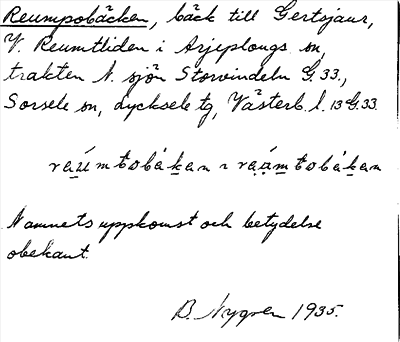 Reumpobäcken, bäck till Gertsjaur,
V. Reumtliden i Arjeplougs sn,
trakten N. sjön Storvindeln G.33.,
Sorsele sn, Lycksele tg, Västerb. l. 13 G.33.
raúmtobákan ~ raámtobákan
Namnets uppkomst och betydelse
obekant.
B. Nygren 1935.